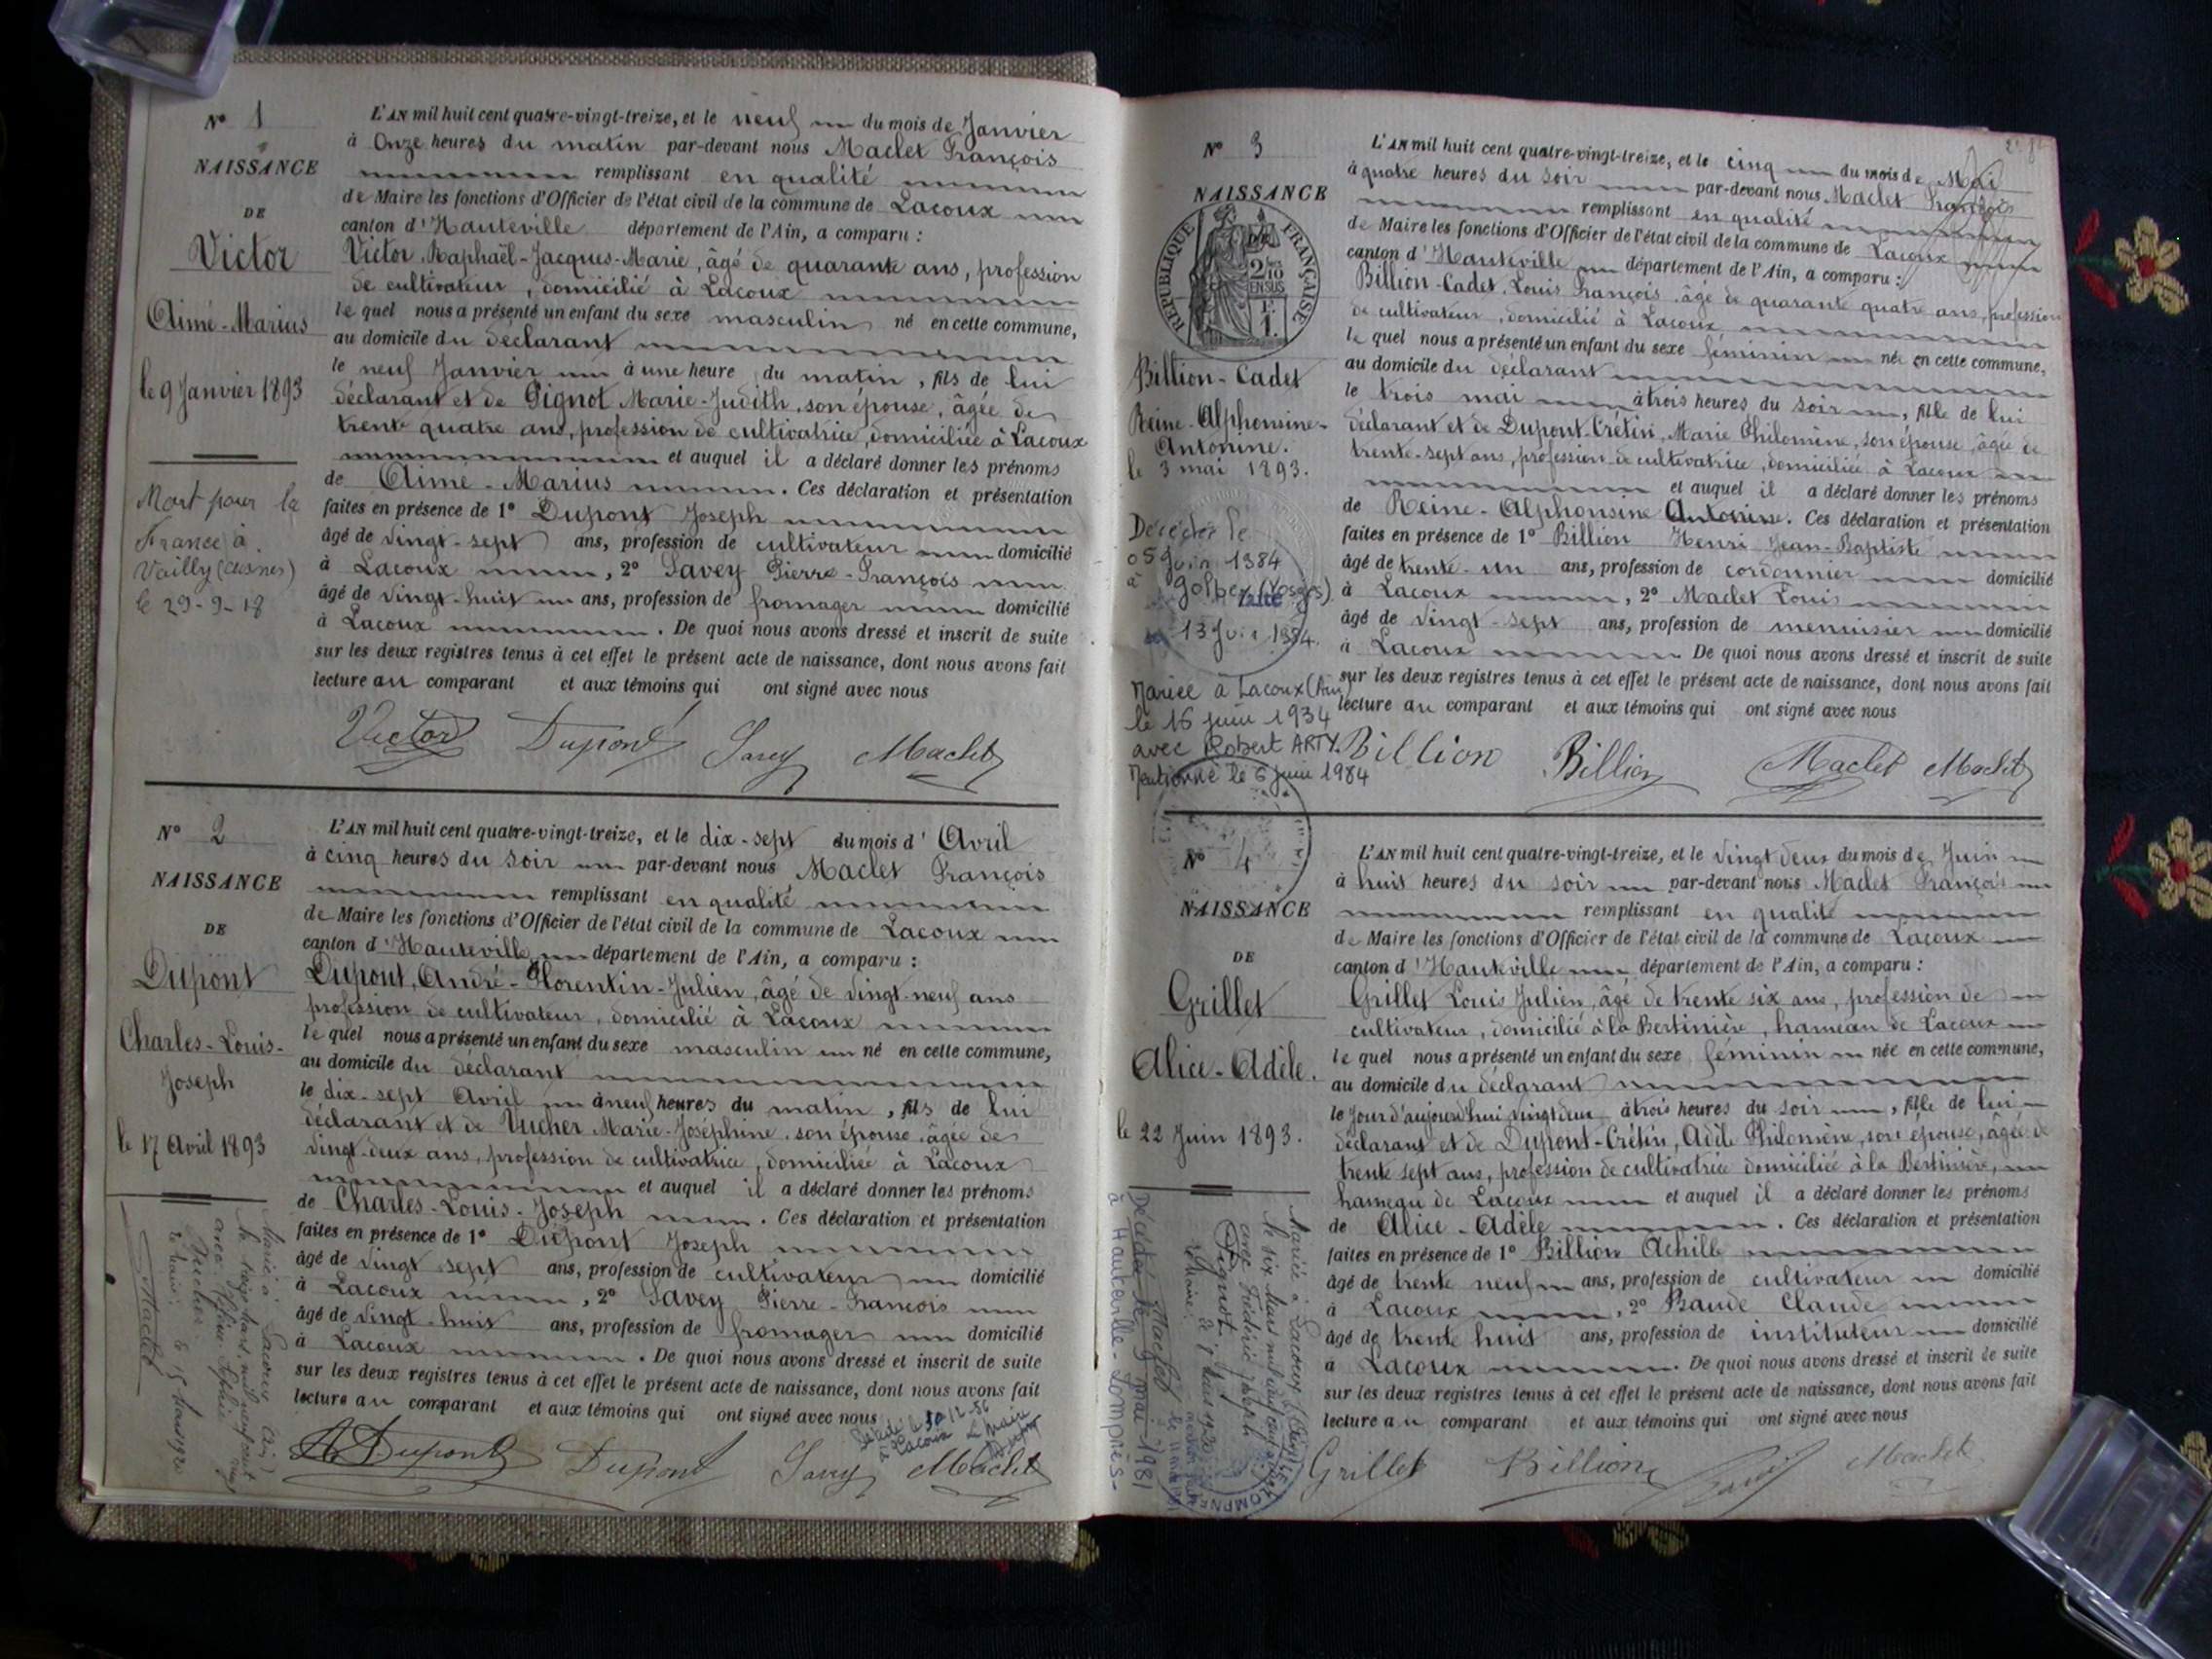 N° 1
NAISSANCE
DE
Victor
Aimé-Marius
le 9 Janvier 1893
Mort pour la
France à
Vailly (Aisnes)
le 29-9-18
L'AN mil huit cent quatre-vingt-treize, et le neuf du mois de Janvier
à Onze heures du matin par-devant nous Maclet François
remplissant en qualité
de Maire les fonctions d'Officier de l'état civil de la commune de Lacoux
canton d'Hauteville département de l'Ain, a comparu :
Victor Raphaël-Jacques-Marie, âgé de quarante ans, profession
de cultivateur, domicilié à Lacoux
lequel nous a présenté un enfant du sexe masculin né en cette commune,
au domicile du déclarant
le neuf Janvier à une heure du matin, fils de lui
déclarant et de Pignot Marie-Judith, son épouse, âgée de
trente quatre ans, profession de cultivatrice, domiciliée à Lacoux
et auquel il a déclaré donner les prénoms
de Aimé-Marius. Ces déclaration et présentation
faites en présence de 1° Dupont Joseph
âgé de vingt-sept ans, profession de cultivateur domicilié
à Lacoux, 2° Savey Pierre-François
âgé de vingt-huit ans, profession de fromager domicilié
à Lacoux. De quoi nous avons dressé et inscrit de suite
sur les deux registres tenus à cet effet le présent acte de naissance, dont nous avons fait
lecture au comparant et aux témoins qui ont signé avec nous
Victor Dupont Savey Maclet
N° 2
NAISSANCE
DE
Dupont
Charles-Louis-
Joseph
le 17 Avril 1893
Marié à Lacoux (Ain)
avec
le Maire
Maclet
L'AN mil huit cent quatre-vingt-treize, et le dix-sept du mois d'Avril
à cinq heures du soir par-devant nous Maclet François
remplissant en qualité
de Maire les fonctions d'Officier de l'état civil de la commune de Lacoux
canton d'Hauteville département de l'Ain, a comparu :
Dupont, André-Florentin-Julien, âgé de vingt-neuf ans
profession de cultivateur, domicilié à Lacoux
lequel nous a présenté un enfant du sexe masculin né en cette commune,
au domicile du déclarant
le dix-sept Avril à neuf heures du matin, fils de lui
déclarant et de Vucher Marie-Joséphine, son épouse, âgée de
vingt-deux ans, profession de cultivatrice, domiciliée à Lacoux
et auquel il a déclaré donner les prénoms
de Charles-Louis-Joseph. Ces déclaration et présentation
faites en présence de 1° Dupont Joseph
âgé de vingt sept ans, profession de cultivateur domicilié
à Lacoux, 2° Savey Pierre-François
âgé de vingt-huit ans, profession de fromager domicilié
à Lacoux. De quoi nous avons dressé et inscrit de suite
sur les deux registres tenus à cet effet le présent acte de naissance, dont nous avons fait
lecture au comparant et aux témoins qui ont signé avec nous
Décédé le 30-12-56
à Lacoux Le Maire
A Dupont Dupont Savey Maclet
N° 3
NAISSANCE
DE
RÉPUBLIQUE FRANÇAISE
2/10 EN SUS
Billion-Cadet
Reine-Alphonsine-
Antonine.
le 3 mai 1893.
Décédée le
05 Juin 1984
à Golbey (Vosges)
13 Juin 1984.
Mariée à Lacoux (Ain)
le 16 juin 1934
avec Robert ARTY.
Mentionné le 6 juin 1984
L'AN mil huit cent quatre-vingt-treize, et le cinq du mois de Mai
à quatre heures du soir par-devant nous Maclet François
remplissant en qualité
de Maire les fonctions d'Officier de l'état civil de la commune de Lacoux
canton d'Hauteville département de l'Ain, a comparu :
Billion-Cadet, Louis François, âgé de quarante quatre ans, profession
de cultivateur, domicilié à Lacoux
lequel nous a présenté un enfant du sexe féminin née en cette commune,
au domicile du déclarant
le trois mai à trois heures du soir, fille de lui
déclarant et de Dupont-Crétin, Marie Philomène, son épouse, âgée de
trente-sept ans, profession de cultivatrice, domiciliée à Lacoux
et auquel il a déclaré donner les prénoms
de Reine-Alphonsine Antonine. Ces déclaration et présentation
faites en présence de 1° Billion Henri Jean-Baptiste
âgé de trente-un ans, profession de cordonnier domicilié
à Lacoux, 2° Maclet Louis
âgé de vingt-sept ans, profession de menuisier domicilié
à Lacoux De quoi nous avons dressé et inscrit de suite
sur les deux registres tenus à cet effet le présent acte de naissance, dont nous avons fait
lecture au comparant et aux témoins qui ont signé avec nous
Billion Billion Maclet Maclet
N° 4
NAISSANCE
DE
Grillet
Alice-Adèle.
le 22 Juin 1893.
Mariée à Lacoux
avec Frédéric Joseph
Pignot.
le Maire
Maclet
Décédée le 9 mai 1981
à Hauteville-Lompnès-
L'AN mil huit cent quatre-vingt-treize, et le vingt deux du mois de Juin
à huit heures du soir par-devant nous Maclet François
remplissant en qualité
de Maire les fonctions d'Officier de l'état civil de la commune de Lacoux
canton d'Hauteville département de l'Ain, a comparu :
Grillet Louis Julien, âgé de trente six ans, profession de
cultivateur, domicilié à la Bertinière, hameau de Lacoux
lequel nous a présenté un enfant du sexe féminin née en cette commune,
au domicile du déclarant
le jour d'aujourd'hui vingt deux à trois heures du soir, fille de lui
déclarant et de Dupont-Crétin, Adèle Philomène, son épouse, âgée de
trente sept ans, profession de cultivatrice domiciliée à la Bertinière,
hameau de Lacoux et auquel il a déclaré donner les prénoms
de Alice-Adèle. Ces déclaration et présentation
faites en présence de 1° Billion Achille
âgé de trente neuf ans, profession de cultivateur domicilié
à Lacoux, 2° Baude Claude
âgé de trente huit ans, profession de instituteur domicilié
à Lacoux. De quoi nous avons dressé et inscrit de suite
sur les deux registres tenus à cet effet le présent acte de naissance, dont nous avons fait
lecture au comparant et aux témoins qui ont signé avec nous
Grillet Billion Maclet